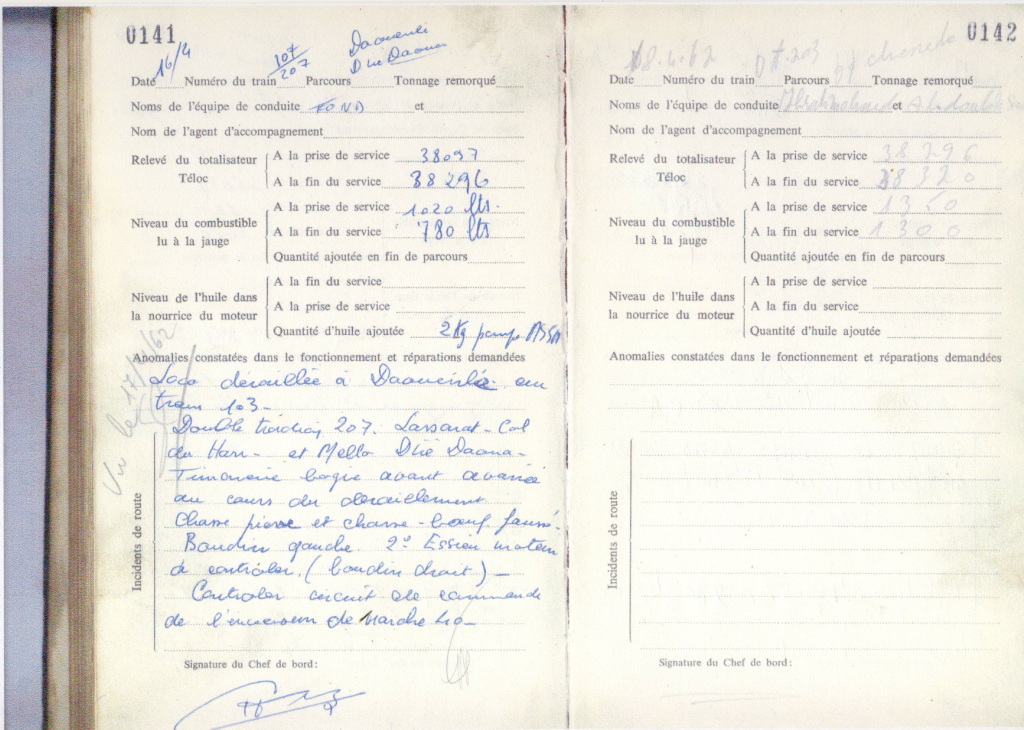 0141
16/4
107/207
Daouenlé
Dire Daoua
Date Numéro du train Parcours Tonnage remorqué
Noms de l'équipe de conduite et
Nom de l'agent d'accompagnement
Relevé du totalisateur Téloc
A la prise de service 38097
A la fin du service 38296
Niveau du combustible lu à la jauge
A la prise de service 1020 lts.
A la fin du service 780 lts
Quantité ajoutée en fin de parcours
Niveau de l'huile dans la nourrice du moteur
A la fin du service
A la prise de service
Quantité d'huile ajoutée 2 Kg
Anomalies constatées dans le fonctionnement et réparations demandées
Vu le 17/4/62
Incidents de route
Loco déraillée à Daouenlé au
train 103-
Double traction 207. Lassarat - Col
du Harr - et Mello Dire Daoua-
Timonerie bogie avant avariée
au cours du déraillement
Chasse pierre et chasse-bœuf faussé.
Boudin gauche 2° Essieu moteur
à contrôler. (boudin droit) -
Controler circuit de commande
de l'inverseur de marche
Signature du Chef de bord :
0142
18.4.62
Date Numéro du train Parcours Tonnage remorqué
Noms de l'équipe de conduite et
Nom de l'agent d'accompagnement
Relevé du totalisateur Téloc
A la prise de service 38296
A la fin du service 38320
Niveau du combustible lu à la jauge
A la prise de service 1350
A la fin du service 1300
Quantité ajoutée en fin de parcours
Niveau de l'huile dans la nourrice du moteur
A la fin du service
A la prise de service
Quantité d'huile ajoutée
Anomalies constatées dans le fonctionnement et réparations demandées
Incidents de route
Signature du Chef de bord :